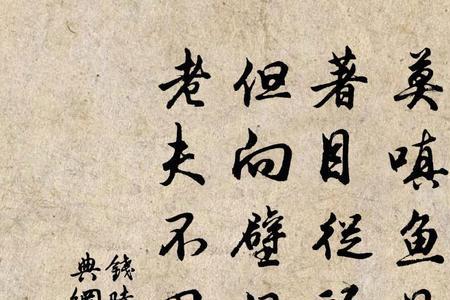 莫嗔魚
著目從
但向壁
老夫不
錢時
典網